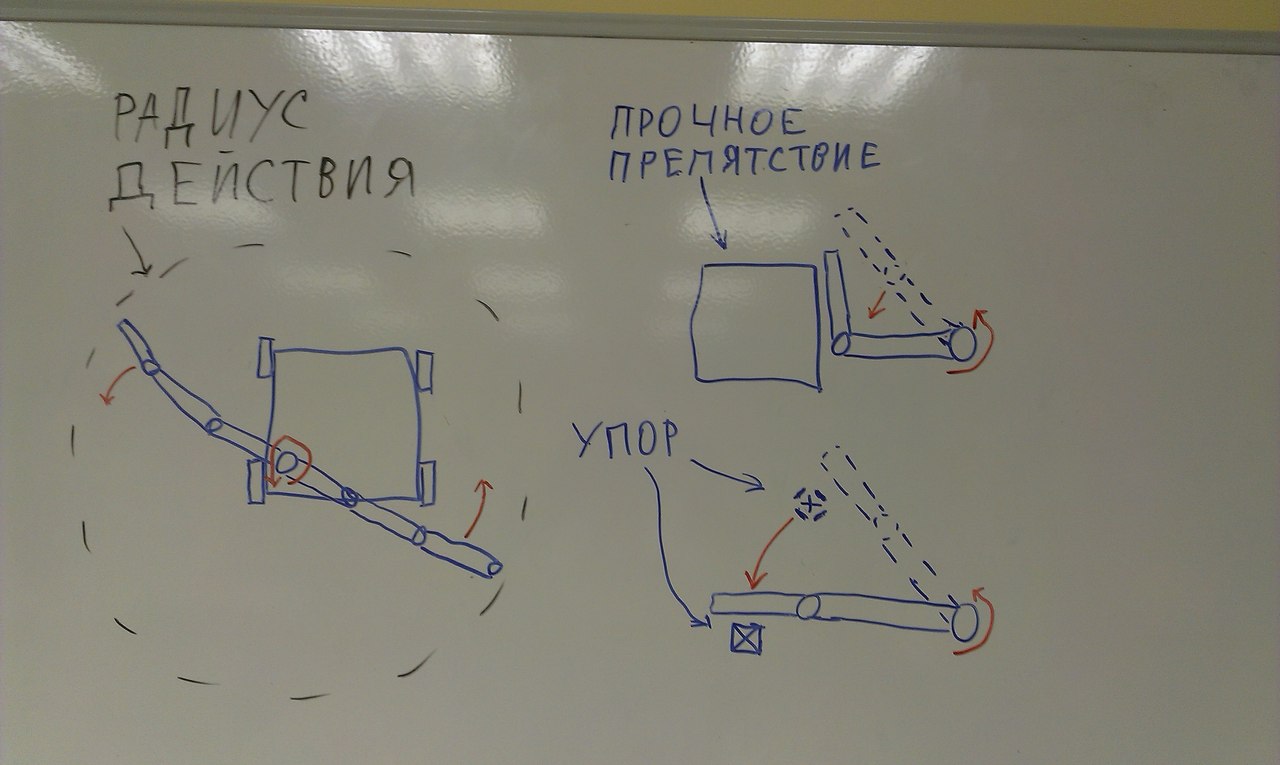 РАДИУС
ДЕЙСТВИЯ
ПРОЧНОЕ
ПРЕПЯТСТВИЕ
УПОР